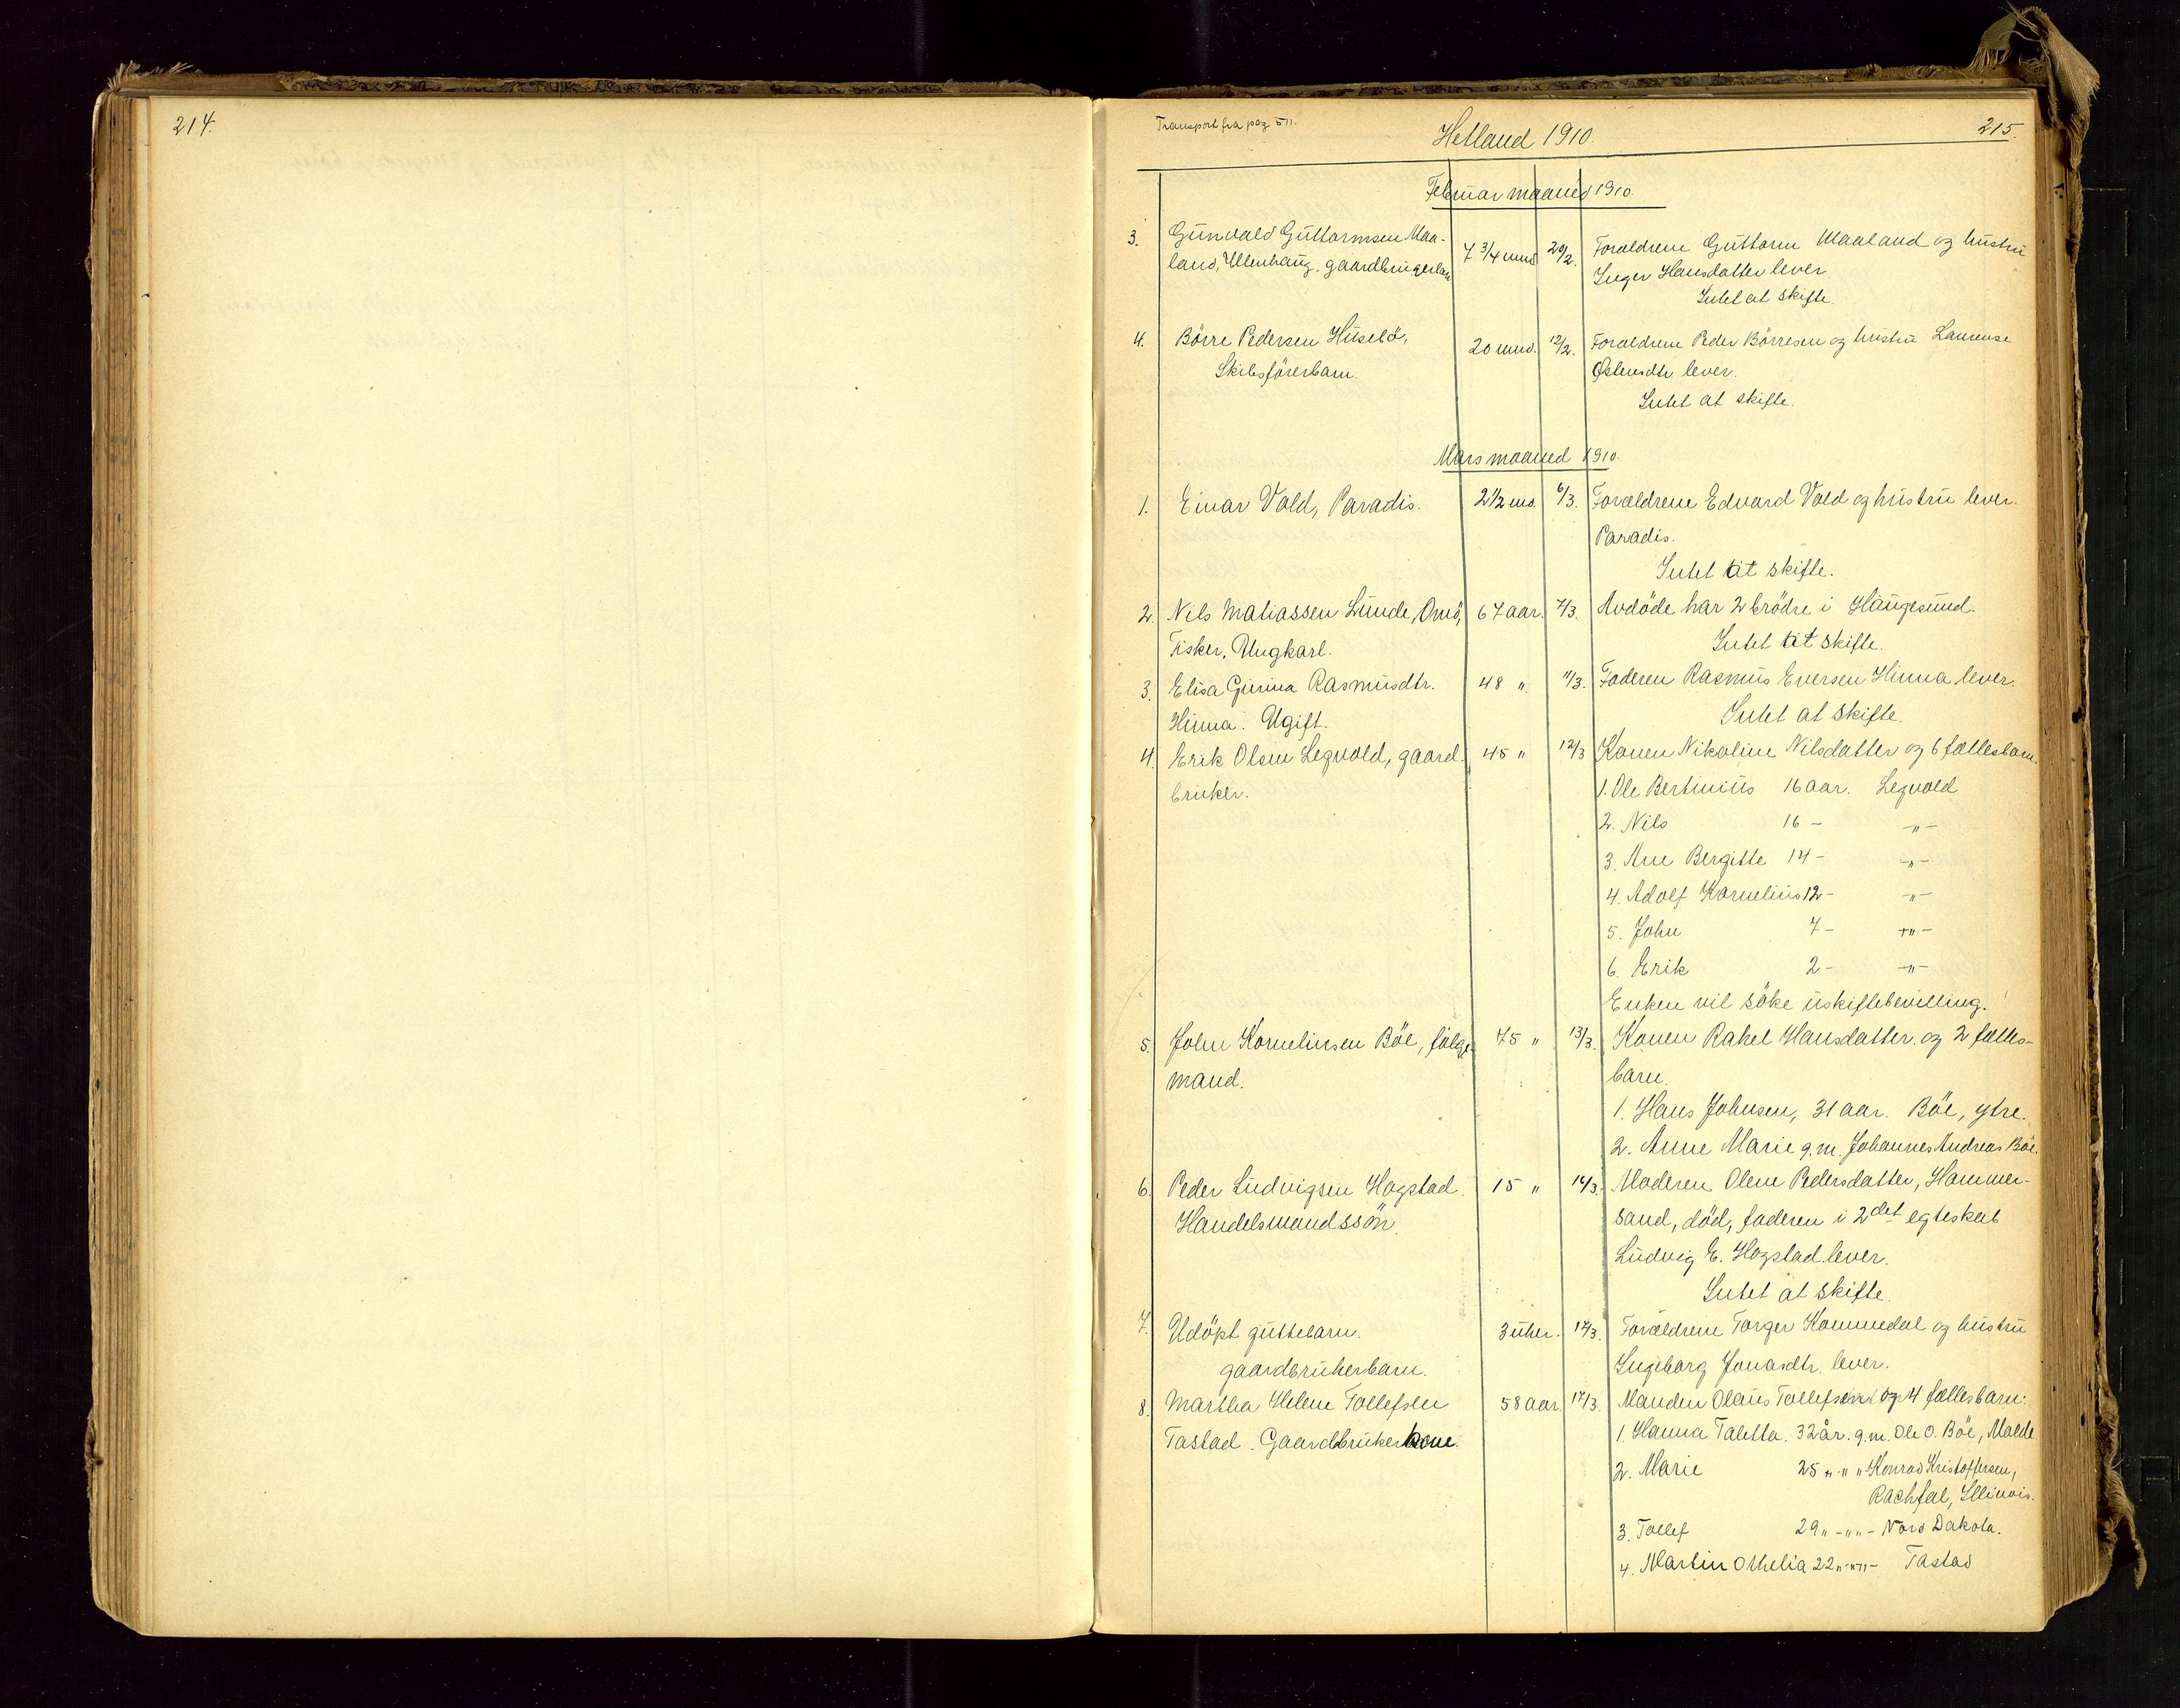 214.
Transport fra pag 511.
Hetland 1910.
215.
Februar maaned 1910.
3. Gunvald Guttormsen Maa- 7 3/4 mnd 20/2. Forældrene Guttorm Maaland og hustru
land, Ullenhaug, gaardbrugerbarn Inger Hansdatter lever.
Intet at skifte.
4. Börre Pedersen Husebö, 20 mnd. 12/2. Forældrene Peder Börresen og hustru Laurense
Skibsförerbarn. Østensdtr lever.
Intet at skifte.
Mars maaned 1910.
1. Einar Vold, Paradis. 2 1/2 md. 6/3. Forældrene Edvard Vold og hustru lever.
Paradis.
Intet at skifte.
2. Nils Matiassen Lunde, Omö, 67 aar. 7/3. Avdöde har 2 brödre i Haugesund.
Fisker. Ungkarl. Intet at skifte.
3. Elisa Gurina Rasmusdtr. 48 " 11/3. Faderen Rasmus Eversen Hinna lever.
Hinna. Ugift. Intet at skifte.
4. Erik Olsen Legvold, gaard- 45 " 12/3 Konen Nikoline Nilsdatter og 6 fællesbarn.
bruker. 1. Ole Bertinius 16 aar. Legvold
2. Nils 16 - -"-
3. Ane Bergitte 14 - -"-
4. Adolf Kornelius 12 - -"-
5. John 7 - -"-
6. Erik 2 - -"-
Enken vil söke uskiftebevilling.
5. John Kornelinsen Böe, fölge- 75 " 13/3. Konen Rakel Hansdatter og 2 fælles-
mand. barn.
1. Hans Johnsen, 31 aar. Böe, ytre.
2. Anne Marie g.m. Johannes Andreas Böe.
6. Peder Ludvigsen Hogstad. 15 " 14/3. Moderen Olene Pedersdatter, Hammer-
Handelsmandssön. sand, död, faderen i 2det egteskab
Ludvig E. Hogstad lever.
Intet at skifte.
7. Udöpt guttebarn. 3 uker. 17/3. Forældrene Torger Kommedal og hustru
gaardbrukerbarn. Ingeborg Jonasdtr. lever.
8. Martha Helene Tollefsen 58 aar. 17/3. Manden Olaus Tollefsen og 4 fællesbarn:
Tastad. Gaardbrukerkone. 1. Hanna Taletta. 32 år. g.m. Ole O. Böe, Malde
2. Marie 25 " - " " - Konrad Kristoffersen,
Rachfal, Illinois.
3. Tollef 29 " - " " - Nord Dakota.
4. Martin Othelia 22 " - " " - Tastad